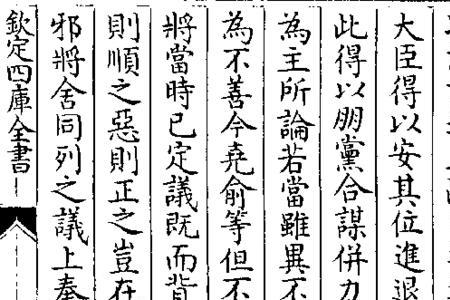 大臣得以安其位進退
此得以朋黨合謀併力
為主所論若當雖異不
為不善今堯俞等但不
將當時已定議既而背
則順之惡則正之豈在
邪將舍同列之議上奉
欽定四庫全書